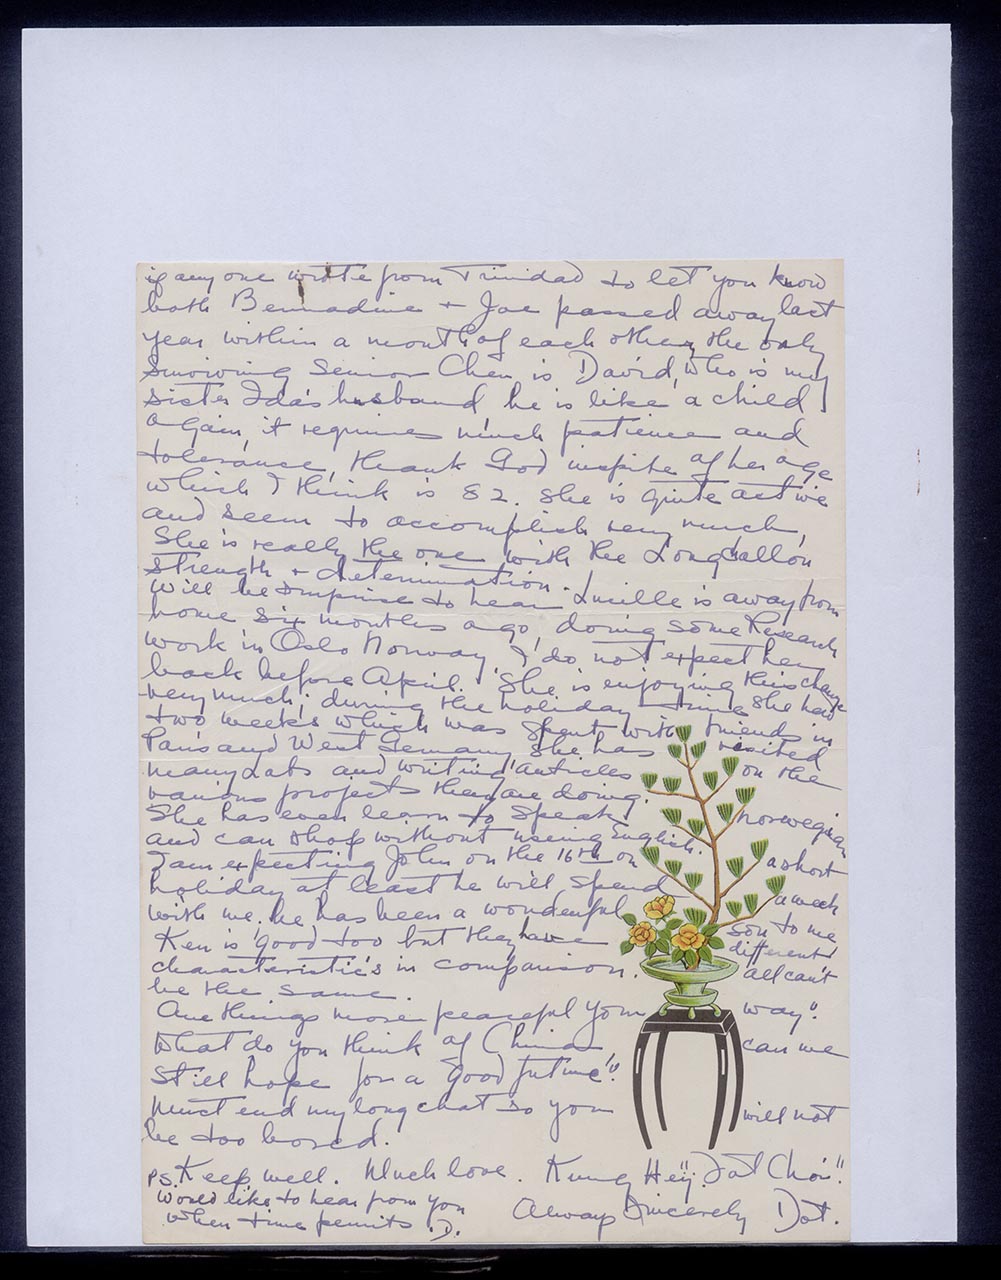 if any one wrote from Trinidad to let you know
both Bernadine + Joe passed away last
year within a month of each other, the only
Senior Chen is David, who is my
sister Ida's husband he is like a child
again, it requires much patience and
tolerance, thank God inspite of her age
which I think is 82. She is quite active
and seem to accomplish very much,
She is really the one with the Longchallon
strength + determination.
Will be surprise to hear Lucille is away from
home six months ago, doing some Research
work in Oslo Norway, I do not expect her
back before April. She is enjoying this change
very much, during the holiday time she had
two weeks which was spent with friends in
Paris and West Germany she has visited
many Labs and writing articles on the
various projects they are doing.
She has even learn to speak norwegian
and can shop without using English.
I am expecting John on the 16th on a short
holiday at least he will spend a week
with me, he has been a wonderful son to me
Ken is good too but they have different
characteristic's in comparison. all can't
be the same.
Are things more peaceful your way".
What do you think of China can we
still hope for a "good future"!
Must end my long chat so you will not
be too bored.
Keep well. Much love. Kung Hey! Fat Choi"
Always Sincerely Dot.
PS. Would like to hear from you
when time permits. D.